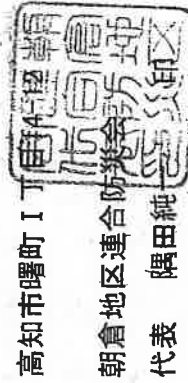 高知市曙町１丁
朝倉地区連合防災会
代表　隅田純